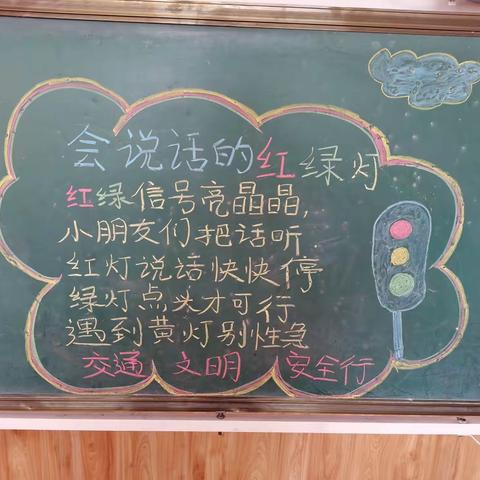 会说话的红绿灯
红绿信号亮晶晶,
小朋友们把话听.
红灯说话快快停
绿灯点头才可行
遇到黄灯别性急
交通 文明 安全行